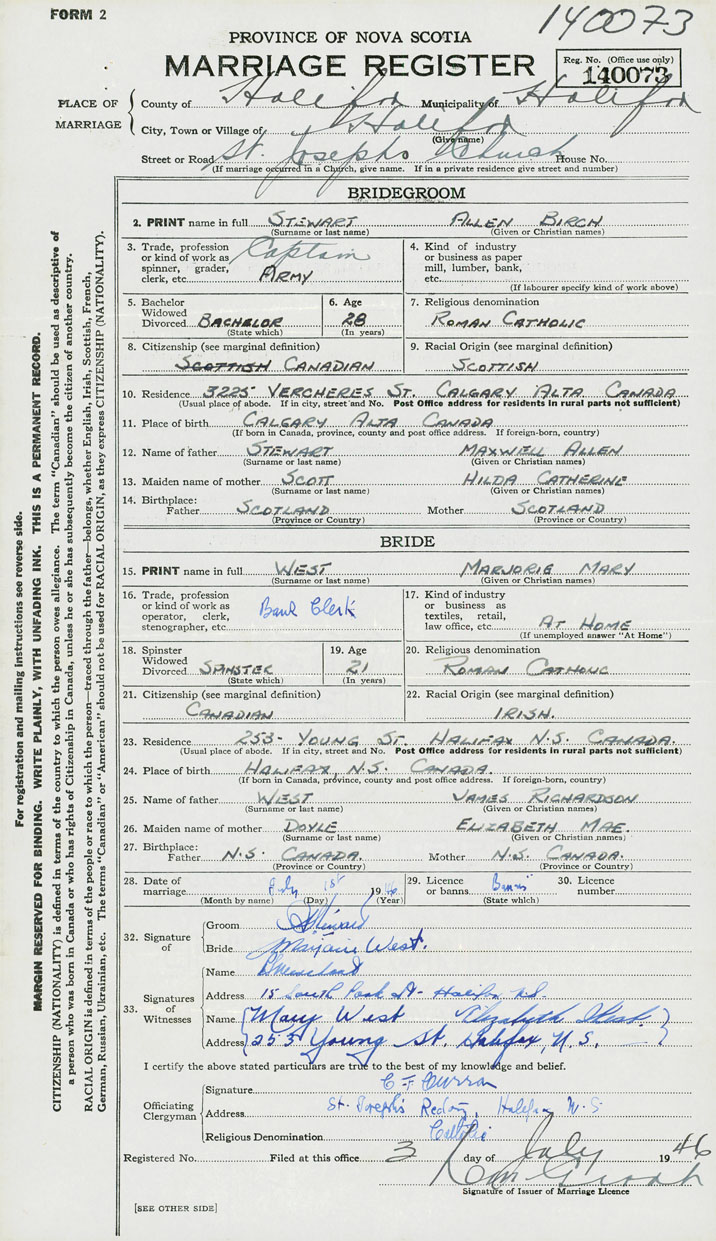 FORM 2
140073
PROVINCE OF NOVA SCOTIA
MARRIAGE REGISTER
Reg. No. (Office use only)
140073
PLACE OF MARRIAGE
County of Halifax Municipality of Halifax
City, Town or Village of Halifax
(Give name)
Street or Road St. Josephs Church House No.
(If marriage occurred in a Church, give name. If in a private residence give street and number)
BRIDEGROOM
2. PRINT name in full STEWART ALLEN BIRCH
(Surname or last name) (Given or Christian names)
3. Trade, profession or kind of work as spinner, grader, clerk, etc. Captain ARMY
4. Kind of industry or business as paper mill, lumber, bank, etc.
(If labourer specify kind of work above)
5. Bachelor Widowed Divorced BACHELOR
(State which)
6. Age 28
(In years)
7. Religious denomination
ROMAN CATHOLIC
8. Citizenship (see marginal definition)
SCOTTISH CANADIAN
9. Racial Origin (see marginal definition)
SCOTTISH
10. Residence 3225 VERCHERES ST. CALGARY ALTA CANADA
(Usual place of abode. If in city, street and No. Post Office address for residents in rural parts not sufficient)
11. Place of birth CALGARY ALTA CANADA
(If born in Canada, province, county and post office address. If foreign-born, country)
12. Name of father STEWART MAXWELL ALLEN
(Surname or last name) (Given or Christian names)
13. Maiden name of mother SCOTT HILDA CATHERINE
(Surname or last name) (Given or Christian names)
14. Birthplace:
Father SCOTLAND Mother SCOTLAND
(Province or Country) (Province or Country)
BRIDE
15. PRINT name in full WEST MARJORIE MARY
(Surname or last name) (Given or Christian names)
16. Trade, profession or kind of work as operator, clerk, stenographer, etc. Bank Clerk
17. Kind of industry or business as textiles, retail, law office, etc. AT HOME
(If unemployed answer "At Home")
18. Spinster Widowed Divorced SPINSTER
(State which)
19. Age 21
(In years)
20. Religious denomination
ROMAN CATHOLIC
21. Citizenship (see marginal definition)
CANADIAN
22. Racial Origin (see marginal definition)
IRISH.
23. Residence 253- YOUNG ST. HALIFAX N.S. CANADA.
(Usual place of abode. If in city, street and No. Post Office address for residents in rural parts not sufficient)
24. Place of birth HALIFAX, N.S. CANADA.
(If born in Canada, province, county and post office address. If foreign-born, country)
25. Name of father WEST JAMES RICHARDSON
(Surname or last name) (Given or Christian names)
26. Maiden name of mother DOYLE ELIZABETH MAE.
(Surname or last name) (Given or Christian names)
27. Birthplace:
Father N.S. CANADA. Mother N.S. CANADA.
(Province or Country) (Province or Country)
28. Date of marriage July 1st 1946
(Month by name) (Day) (Year)
29. Licence or banns Banns
(State which)
30. Licence number
32. Signature of
Groom
Bride Marjorie West.
33. Signatures of Witnesses
Name
Address 15 South Park St- Halifax N.S.
Name Mary West Elizabeth West.
Address 253 Young St. Halifax, N.S.
I certify the above stated particulars are true to the best of my knowledge and belief.
Officiating Clergyman
Signature C F Curran
Address St. Joseph's Rectory, Halifax N.S
Religious Denomination Catholic
Registered No. Filed at this office 3 day of July 1946
Signature of Issuer of Marriage Licence
[SEE OTHER SIDE]
For registration and mailing instructions see reverse side.
MARGIN RESERVED FOR BINDING. WRITE PLAINLY, WITH UNFADING INK. THIS IS A PERMANENT RECORD.
CITIZENSHIP (NATIONALITY) is defined in terms of the country to which the person owes allegiance. The term "Canadian" should be used as descriptive of
a person who was born in Canada or who has rights of Citizenship in Canada, unless he or she has subsequently become the citizen of another country.
RACIAL ORIGIN is defined in terms of the people or race to which the person—traced through the father—belongs, whether English, Irish, Scottish, French,
German, Russian, Ukrainian, etc. The terms "Canadian" or "American" should not be used for RACIAL ORIGIN, as they express CITIZENSHIP (NATIONALITY).